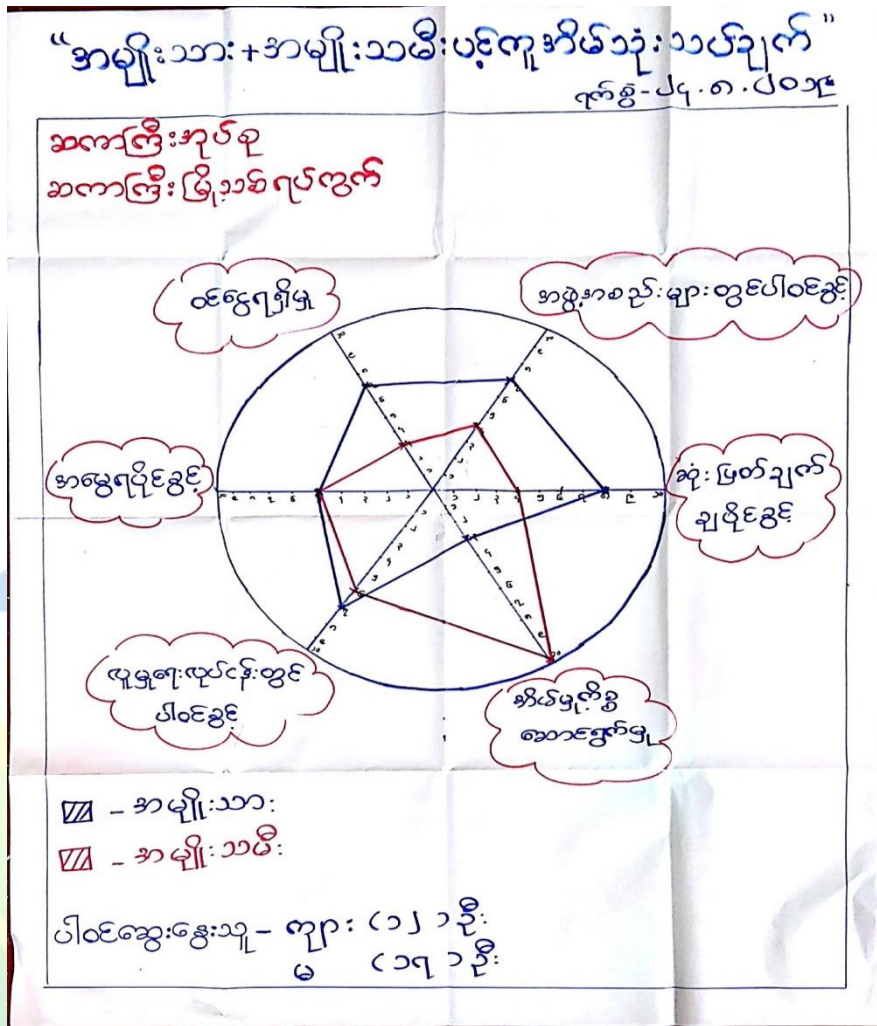 “အမျိုးသား+အမျိုးသမီးပင့်ကူအိမ်သုံးသပ်ချက်”
ရက်စွဲ-၂၄.၈.၂၀၁၉
ဆကာကြီးအုပ်စု
ဆကာကြီးမြို့သစ်ရပ်ကွက်
ဝင်ငွေရရှိမှု
အဖွဲ့အစည်းများတွင်ပါဝင်ခွင့်
အမွေရပိုင်ခွင့်
ဆုံးဖြတ်ချက်
ချပိုင်ခွင့်
လူမှုရေးလုပ်ငန်းတွင်
ပါဝင်ခွင့်
အိမ်မှုကိစ္စ
ဆောင်ရွက်မှု
- အမျိုးသား
- အမျိုးသမီး
ပါဝင်ဆွေးနွေးသူ - ကျား (၁၂) ဦး
မ (၁၇) ဦး